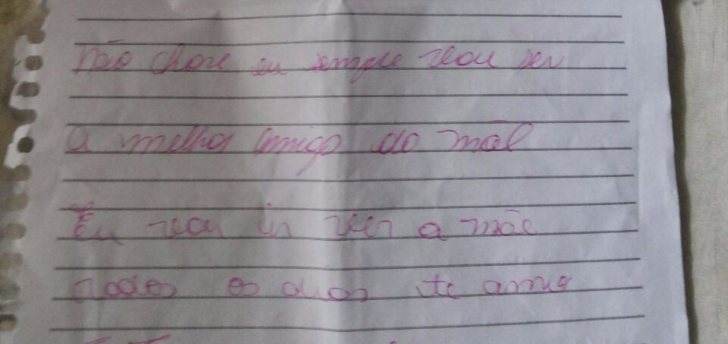 não chore eu sempre vou ser
a melhor amigo do mal
Eu vou ir ver a mãe
todos os dias te amo